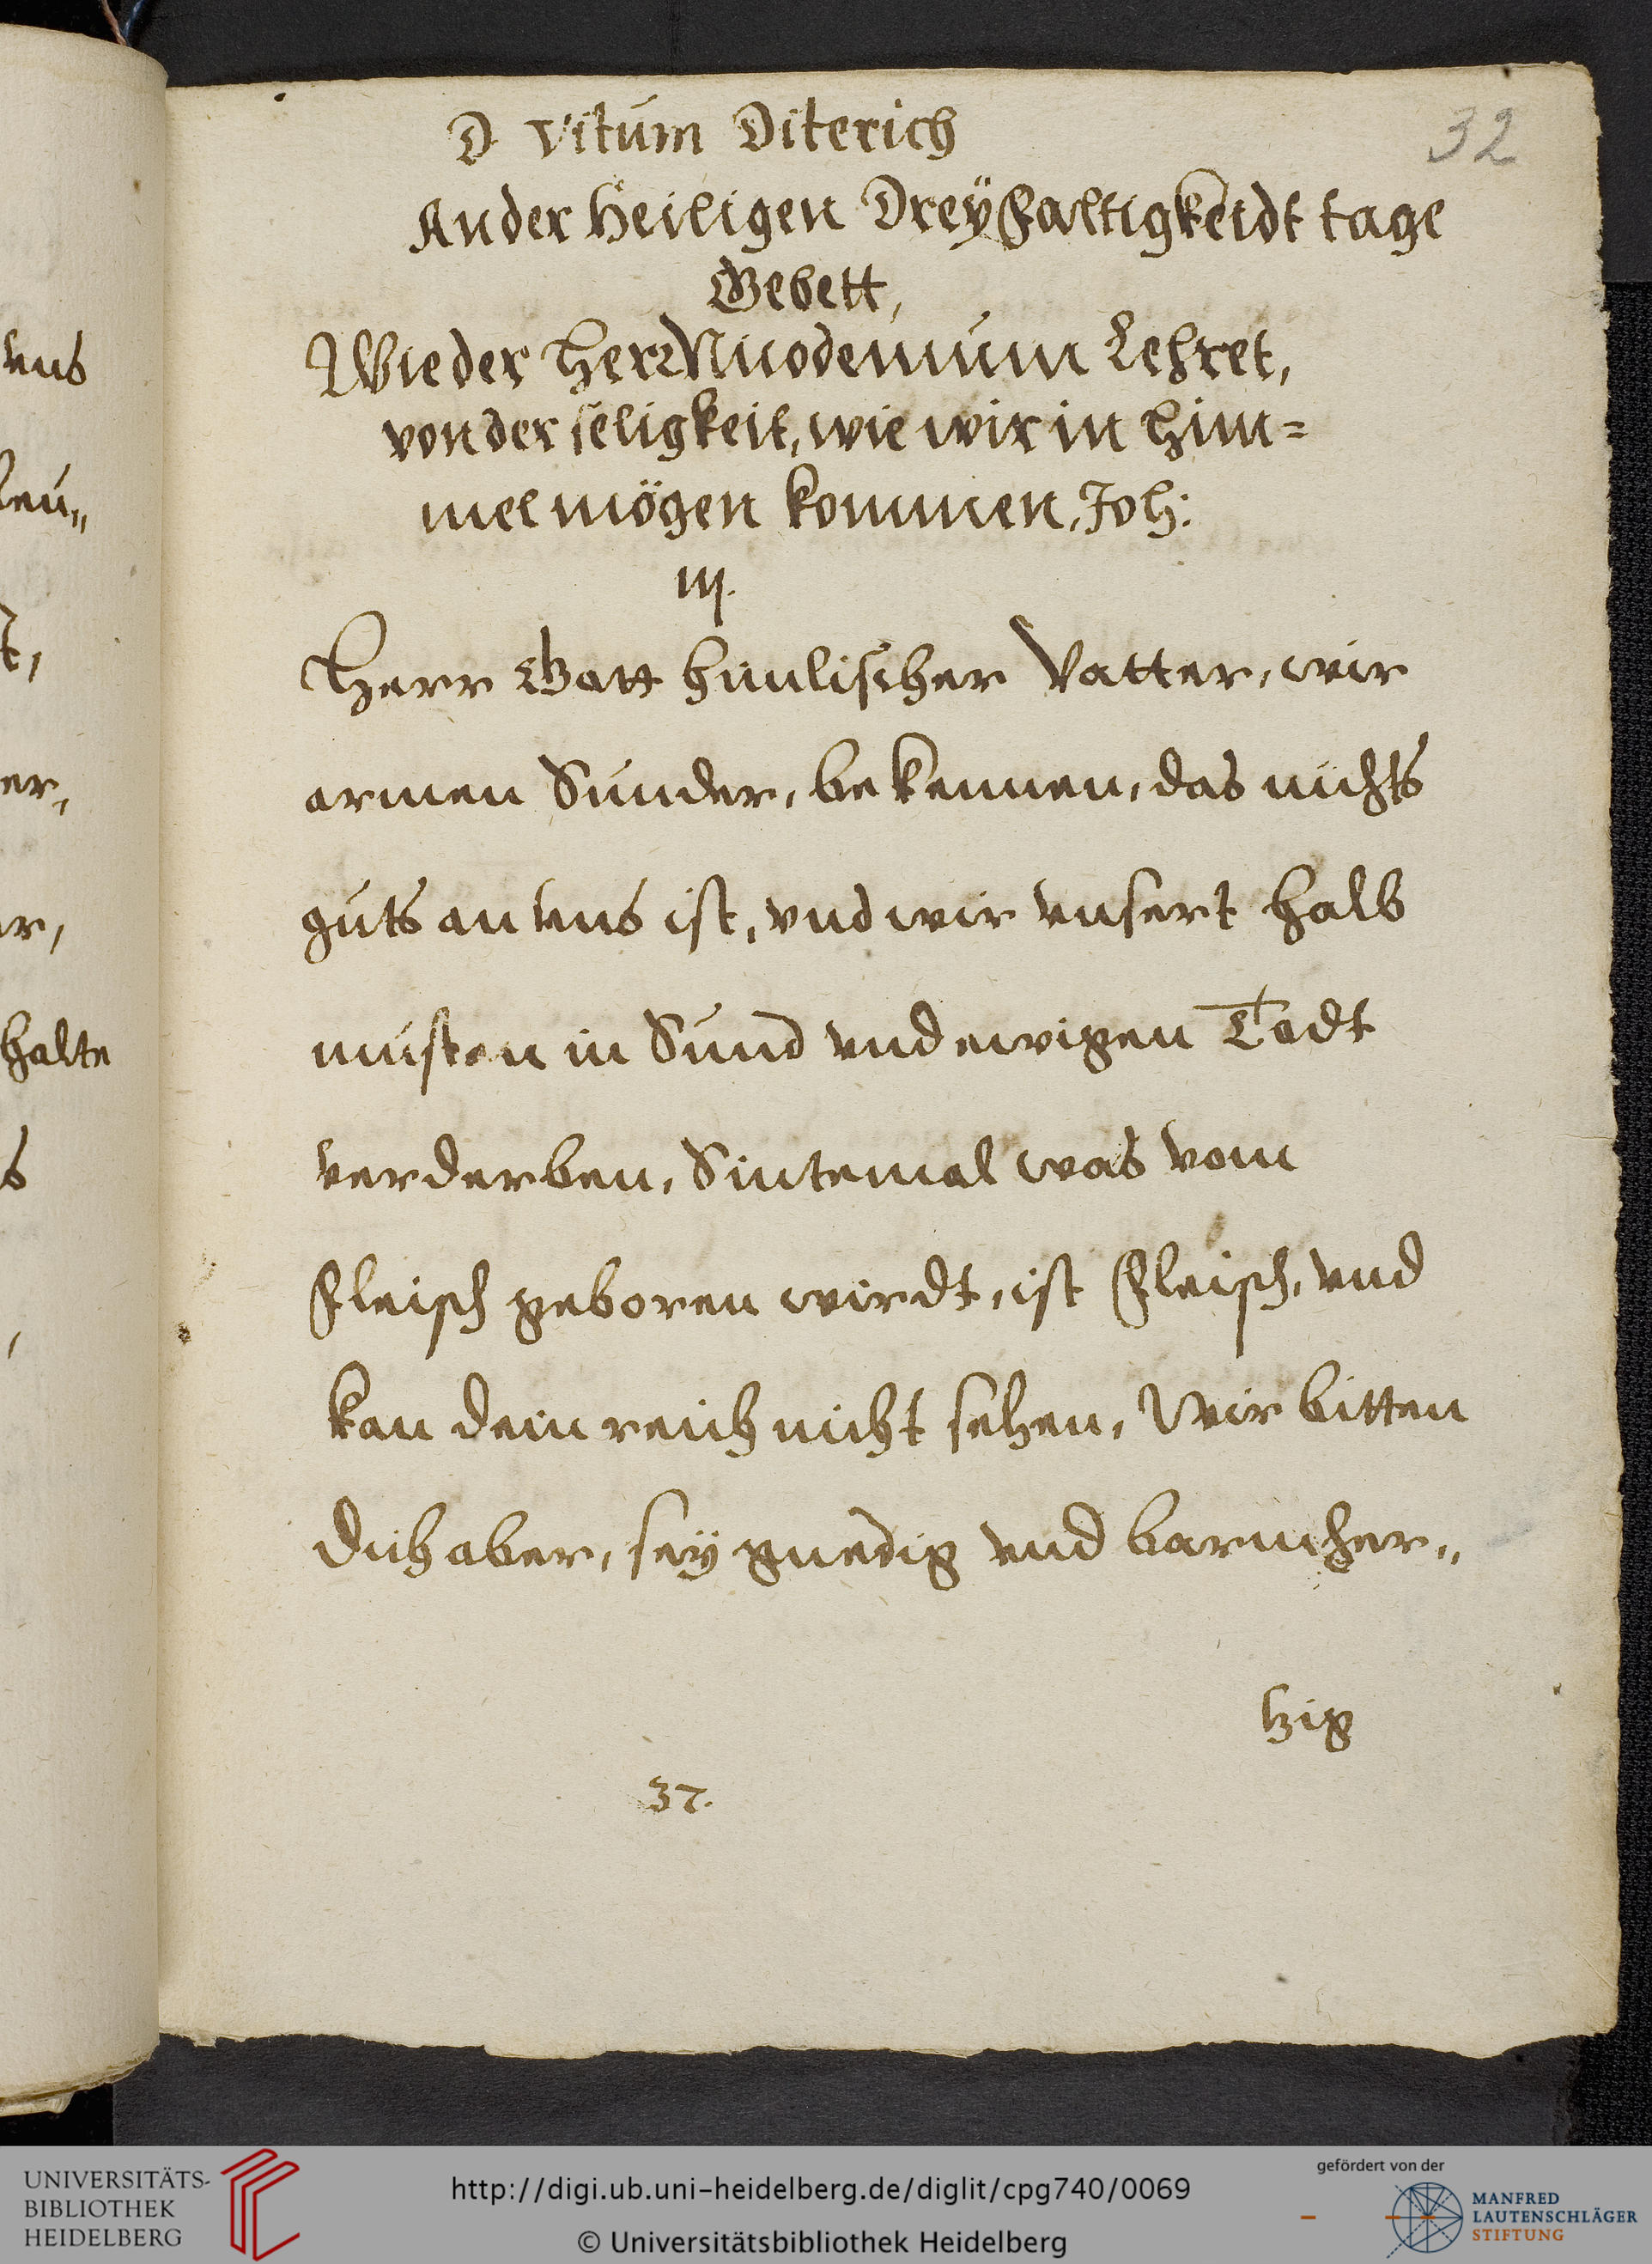 32
D Vitum Diterich
An der Heiligen Dreyfaltigkeidt tage
Gebett,
Wie der Herr Nicodemum Lehret,
von der seligkeit, wie wir in him=
mel mögen kommen, Joh:
iij.
Herr Gott himlischer Vatter, wir
armen Sunder, bekennen, das nichts
guts an vns ist, vnd wir vnsert halb
musten in Sund vnd ewigen Todt
verderben, Sintemal was vom
fleisch geboren wirdt, ist fleisch, vnd
kan dein reich nicht sehen, Wir bitten
dich aber, sey gnedig vnd barmher„
tzig
32.
vns
er,
halte
UNIVERSITÄTS-
BIBLIOTHEK
HEIDELBERG
http://digi.ub.uni-heidelberg.de/diglit/cpg740/0069
© Universitätsbibliothek Heidelberg
gefördert von der
MANFRED
LAUTENSCHLÄGER
STIFTUNG